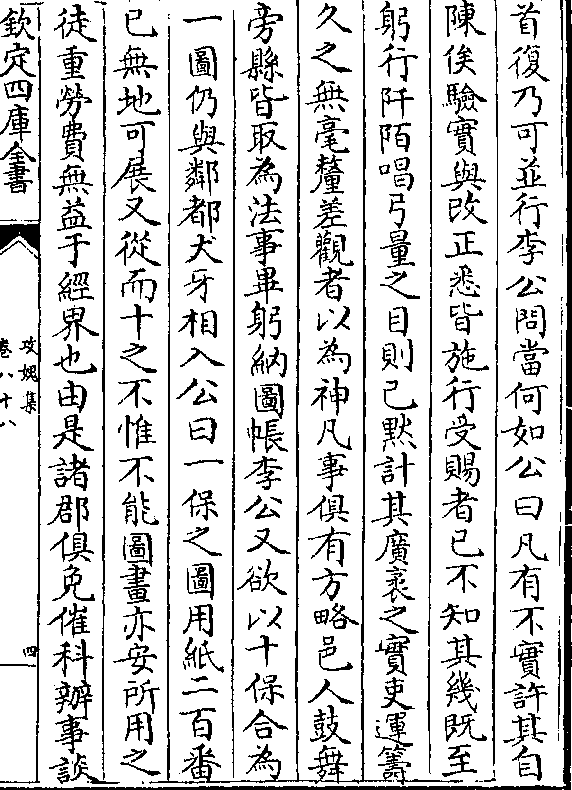 首復乃可並行李公問當何如公曰凡有不實許其自
陳俟驗實與改正悉皆施行受賜者已不知其幾既至
躬行阡陌唱弓量之目則已黙計其廣袤之實吏運籌
久之無毫釐差觀者以為神凡事俱有方略邑人鼓舞
旁縣皆取為法事畢躬納圖帳李公又欲以十保合為
一圖仍與鄰都犬牙相入公曰一保之圖用紙二百番
已無地可展又從而十之不惟不能圖畫亦安所用之
徒重勞費無益于經界也由是諸郡俱免催科辦事談
欽定四庫全書
攻媿集
卷八十八
四